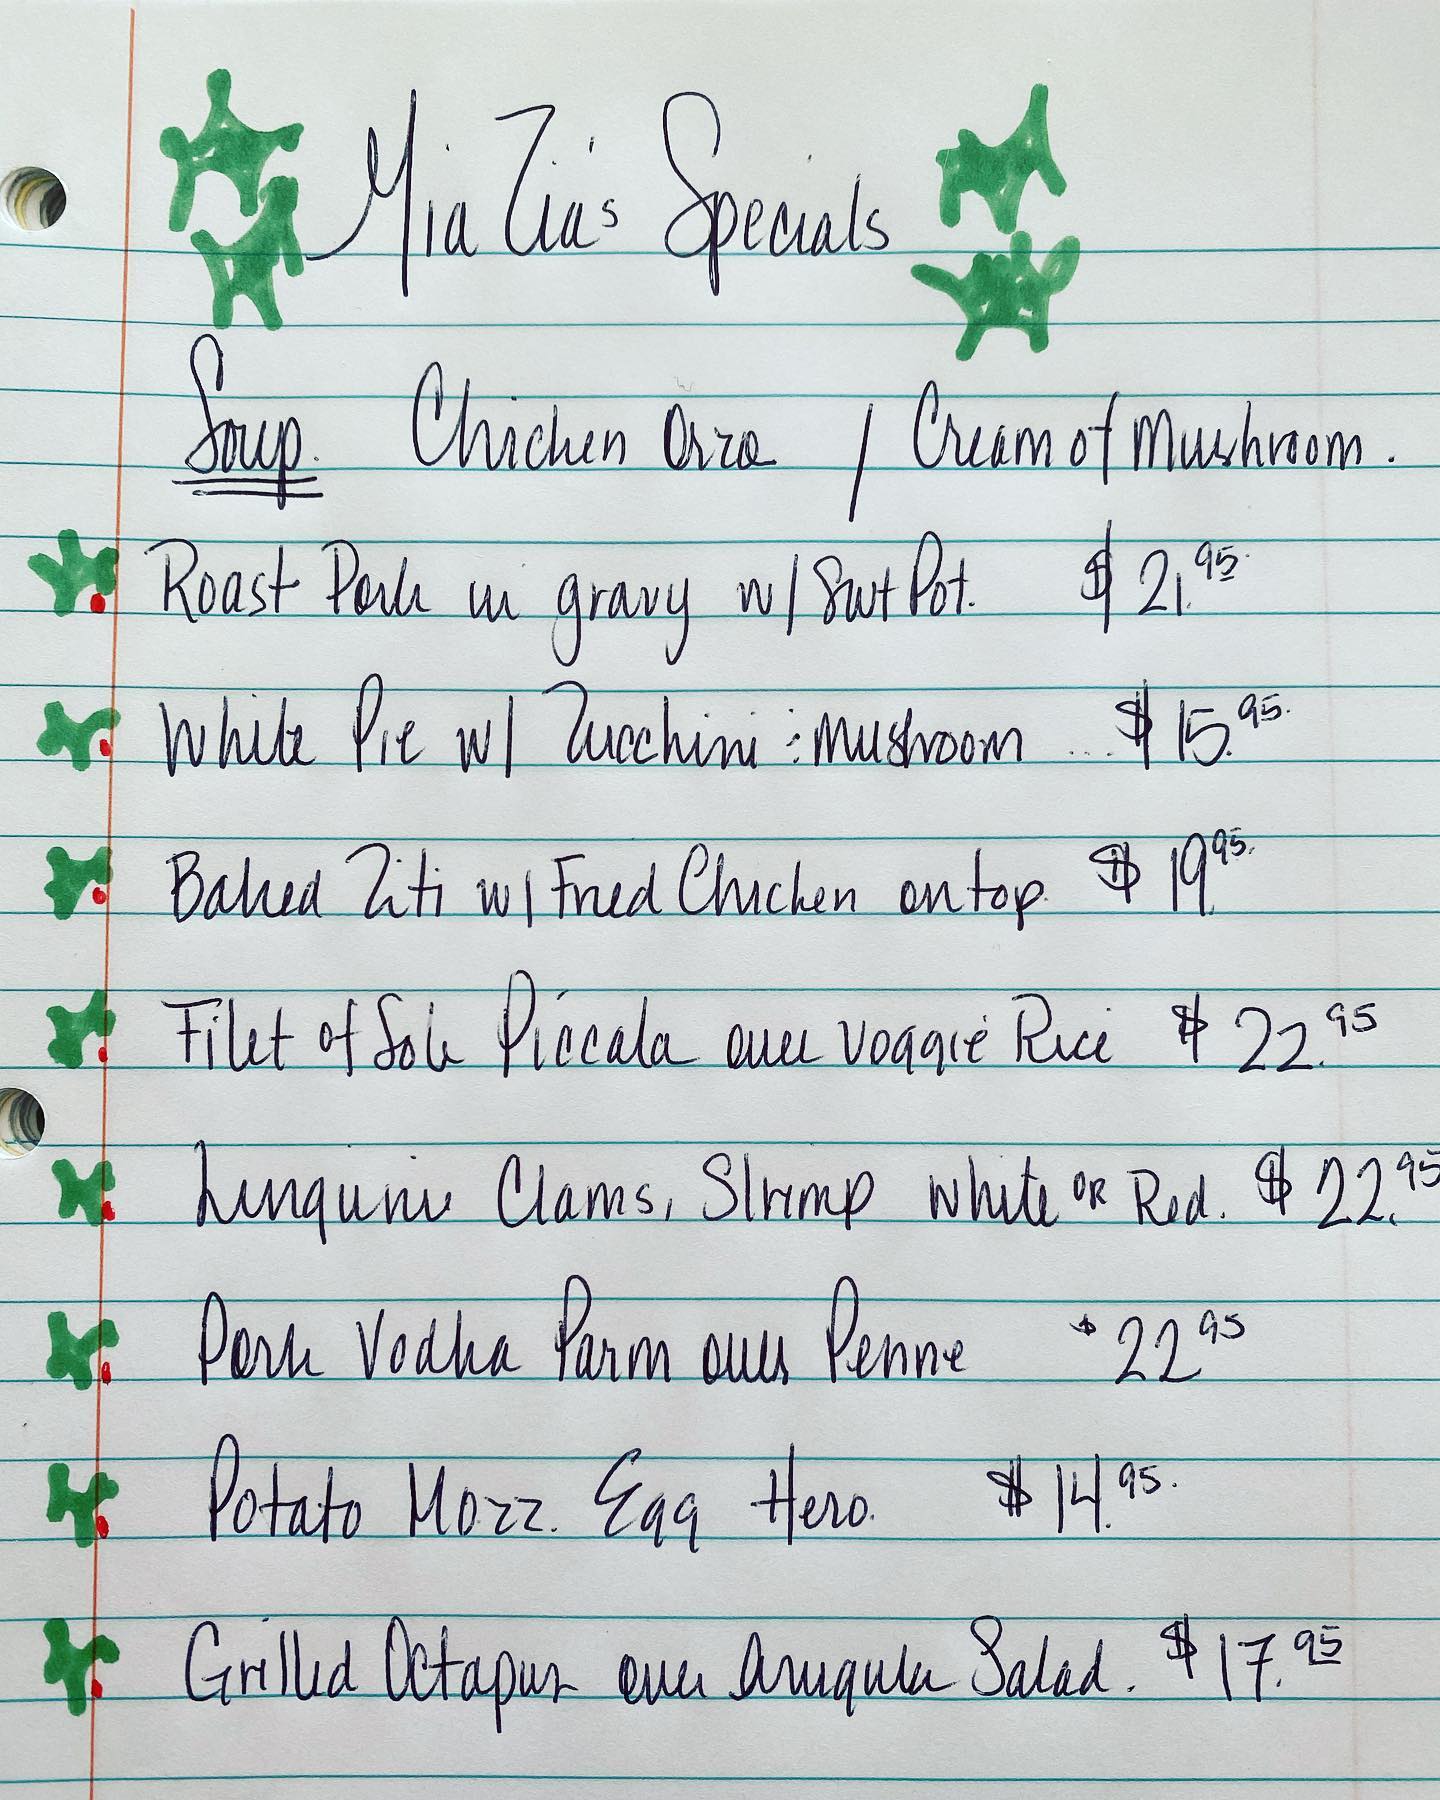 Mia Zia's Specials
Soup. Chicken Orzo / Cream of Mushroom.
Roast Pork in gravy w/ Swt Pot. $21.95
White Pie w/ Zucchini & Mushroom ... $15.95
Baked Ziti w/ Fried Chicken on top. $19.95
Filet of Sole Piccata over Veggie Rice $22.95
Linguini Clams, Shrimp White OR Red. $22.95
Pork Vodka Parm over Penne $22.95
Potato Mozz. Egg Hero. $14.95
Grilled Octapus over Arugula Salad. $17.95